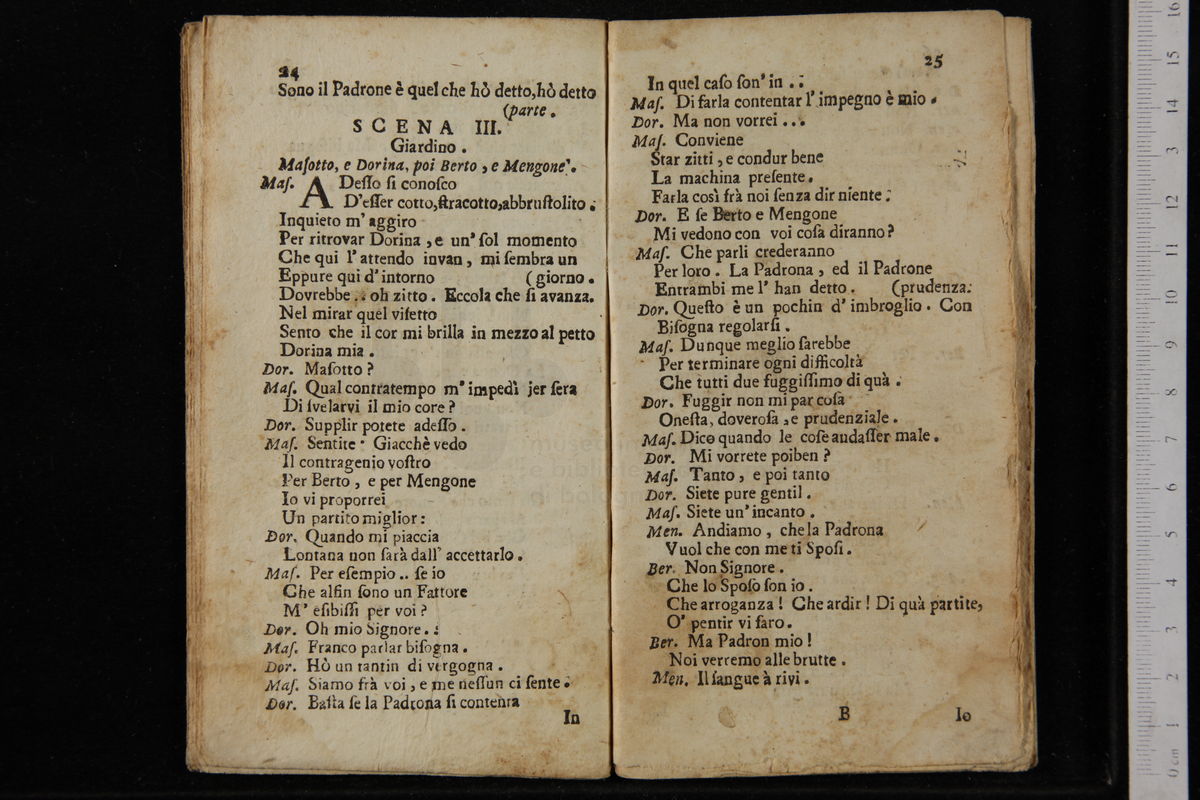 24
Sono il Padrone è quel che hò detto,hò detto
(parte .
SCENA III.
Giardino .
Maſotto, e Dorina, poi Berto , e Mengone .
Maſ. ADeſſo ſi conoſco
D'eſſer cotto,ſtracotto,abbruſtolito .
Inquieto m' aggiro
Per ritrovar Dorina , e un' ſol momento
Che qui l' attendo invan , mi ſembra un
Eppure qui d' intorno (giorno .
Dovrebbe .. oh zitto . Eccola che ſi avanza.
Nel mirar quel viſetto
Sento che il cor mi brilla in mezzo al petto
Dorina mia .
Dor. Maſotto ?
Maſ. Qual contratempo m' impedì jer ſera
Di ſvelarvi il mio core ?
Dor. Supplir potete adeſſo .
Maſ. Sentite . Giacchè vedo
Il contragenio voſtro
Per Berto , e per Mengone
Io vi proporrei
Un partito miglior :
Dor. Quando mi piaccia
Lontana non ſarà dall' accettarlo .
Maſ. Per eſempio .. ſe io
Che alfin ſono un Fattore
M' eſibiſſi per voi ?
Dor. Oh mio Signore . .
Maſ. Franco parlar biſogna .
Dor. Hò un tantin di vergogna .
Maſ. Siamo frà voi , e me neſſun ci ſente .
Dor. Baſta ſe la Padrona ſi contenta
In
25
In quel caſo ſon' in . .
Maſ. Di farla contentar l' impegno è mio .
Dor. Ma non vorrei . . .
Maſ. Conviene
Star zitti , e condur bene
La machina preſente .
Farla così frà noi ſenza dir niente .
Dor. E ſe Berto e Mengone
Mi vedono con voi coſa diranno ?
Maſ. Che parli crederanno
Per loro . La Padrona , ed il Padrone
Entrambi me l' han detto . (prudenza.
Dor. Queſto è un pochin d' imbroglio . Con
Biſogna regolarſi .
Maſ. Dunque meglio ſarebbe
Per terminare ogni difficoltà
Che tutti due fuggiſſimo di quà .
Dor. Fuggir non mi par coſa
Oneſta, doveroſa , e prudenziale .
Maſ. Dico quando le coſe andaſſer male .
Dor. Mi vorrete poi ben ?
Maſ. Tanto , e poi tanto
Dor. Siete pure gentil .
Maſ. Siete un' incanto .
Men. Andiamo , che la Padrona
Vuol che con me ti Spoſi .
Ber. Non Signore .
Che lo Spoſo ſon io .
Che arroganza ! Che ardir ! Di quà partite,
O' pentir vi faro .
Ber. Ma Padron mio !
Noi verremo alle brutte .
Men. Il ſangue à rivi .
B Io